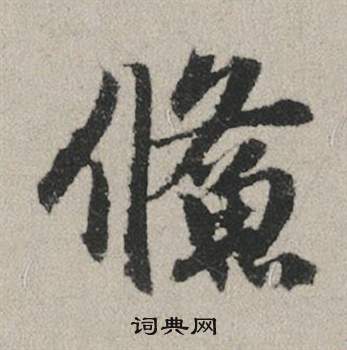 儵
词典网